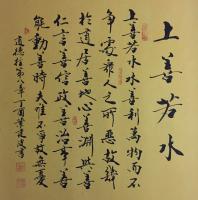 上善若水
上善若水水善利萬物而不
争處衆人之所惡故幾
於道居善地心善淵與善
仁言善信政善治事善
能動善時夫唯不爭故無憂
道德经第八章丁酉葉建書